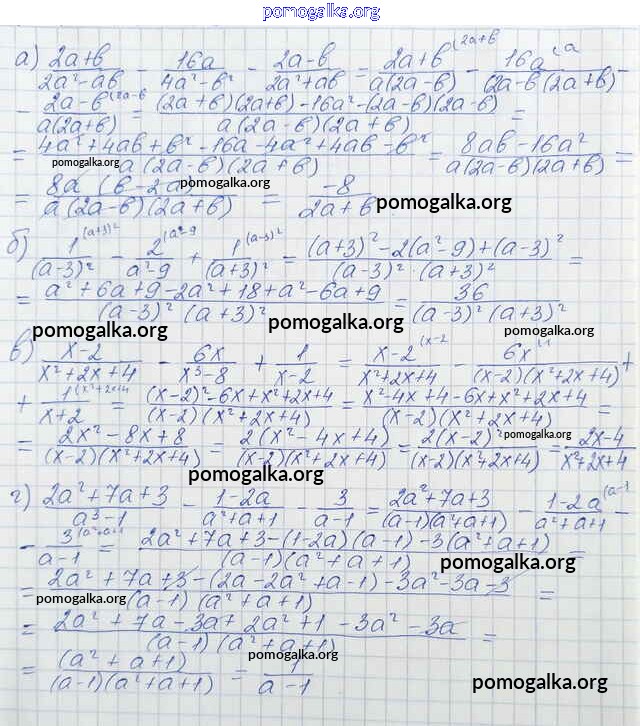 pomogalka.org
а) (2a+b)/(2a²-ab) - 16a/(4a²-b²) - (2a-b)/(2a²+ab) = (2a+b^(2a+b)/(a(2a-b)) - 16a^(a/((2a-b)(2a+b)) -
- (2a-b^(2a-b)/(a(2a+b)) = ((2a+b)(2a+b)-16a²-(2a-b)(2a-b))/(a(2a-b)(2a+b)) =
= (4a²+4ab+b²-16a-4a²+4ab-b²)/(a(2a-b)(2a+b)) = (8ab-16a²)/(a(2a-b)(2a+b)) =
pomogalka.org
= (8a(b-2a))/(a(2a-b)(2a+b)) = -8/(2a+b)
pomogalka.org
pomogalka.org
б) 1^(a+3)²/(a-3)² - 2^(a²-9/(a²-9) + 1^(a-3)²/(a+3)² = ((a+3)²-2(a²-9)+(a-3)²)/((a-3)²·(a+3)²) =
= (a²+6a+9-2a²+18+a²-6a+9)/((a-3)²(a+3)²) = 36/((a-3)²(a+3)²)
pomogalka.org
pomogalka.org
pomogalka.org
в) (x-2)/(x²+2x+4) - 6x/(x³-8) + 1/(x-2) = (x-2^(x-2)/(x²+2x+4) - 6x^(1/((x-2)(x²+2x+4)) +
+ 1^(x²+2x+4/(x+2) = ((x-2)²-6x+x²+2x+4)/((x-2)(x²+2x+4)) = (x²-4x+4-6x+x²+2x+4)/((x-2)(x²+2x+4)) =
= (2x²-8x+8)/((x-2)(x²+2x+4)) = (2(x²-4x+4))/((x-2)(x²+2x+4)) = (2(x-2)²)/((x-2)(x²+2x+4)) = (2x-4)/(x²+2x+4)
pomogalka.org
pomogalka.org
г) (2a²+7a+3)/(a³-1) - (1-2a)/(a²+a+1) - 3/(a-1) = (2a²+7a+3)/((a-1)(a²+a+1)) - (1-2a^(a-1)/(a²+a+1) -
- 3^(a²+a+1/(a-1) = (2a²+7a+3-(1-2a)(a-1)-3(a²+a+1))/((a-1)(a²+a+1)) =
pomogalka.org
= (2a²+7a+3-(2a-2a²+a-1)-3a²-3a-3)/((a-1)(a²+a+1)) =
pomogalka.org
= (2a²+7a-3a+2a²+1-3a²-3a)/((a-1)(a²+a+1)) =
pomogalka.org
= (a²+a+1)/((a-1)(a²+a+1)) = 1/(a-1)
pomogalka.org